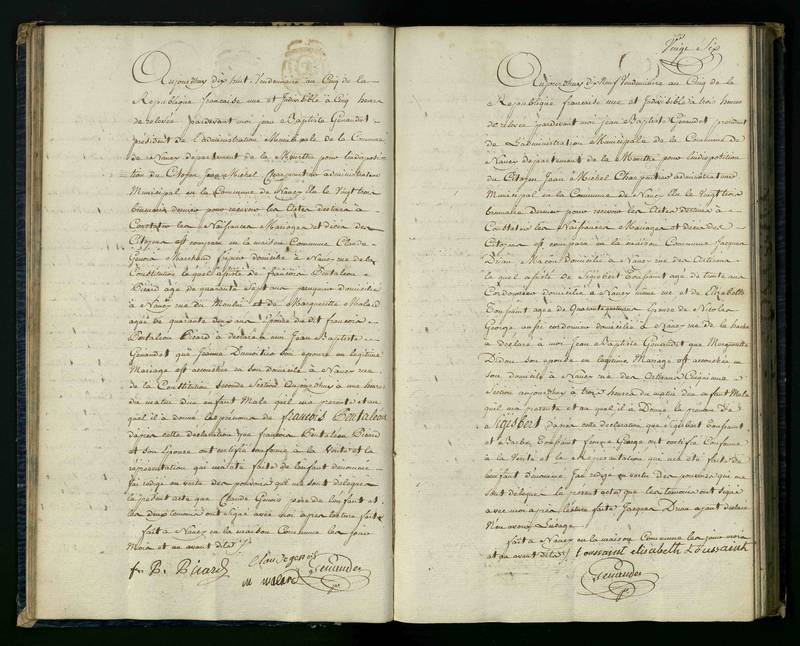 Aujourdhuy dix huit Vendemiaire an Cinq de la
Republique francaise une et Indivisible à Cinq heures
de relevée pardevant moi jean Baptiste Genaudet
président de l'administration Municipale de la Commune
de Nancy departement de la Meurthe pour l'indisposi
tion du Citoyen Jean Michel Charpentier administrateur
Municipal en la Commune de Nancy Elu le Vingt trois
brumaire dernier pour recevoir les Actes destinés à
Constater les Naissances Mariages et décès des
Citoyens est comparu en la maison Commune Claude
Genois Marchand fripier domicilié à Nancy rue de la
Constitution le quel assisté de françois Pentaleon
Picard agé de quarante Sept ans perruquier domicilié
à Nancy rue du Moulin et de Marguerite Malard
agée de quarante deux ans Epouse du dit francois
Pentaleon Picard à déclaré à moi Jean Baptiste
Genaudet que jeanne son epouse en legitime
Mariage est accouchée en son domicile à Nancy rue
de la Constitution Seconde Section aujourdhuy à une heure
du matin d'un enfant Male quil ma presenté et au
quel il a donné les prénoms de francois Pentaleon
d'apres cette déclaration que francois Pentaleon Picard
et son Epouse ont certifié conforme à la Verité et la
représentation qui m'a été faite de l'enfant denommé
J'ai redigé en vertu des pouvoirs qui me sont délégués
le présent acte que Claude Genois pere de l'enfant et
les deux temoins ont Signé avec moi apres lecture faite
fait à Nancy en la maison Commune les jour
Mois et an avant dits
fr. P. Picard Claude genois
m malard Genaudet
Vingt Six
Aujourdhuy dix Neuf Vendemiaire an Cinq de la
Republique francaise une et Indivisible à trois heures
de relevée pardevant moi jean Baptiste Genaudet président
de L'administration Municipale de la Commune de
Nancy departement de la Meurthe pour l'indisposition
du Citoyen Jean Michel Charpentier administrateur
Municipal en la Commune de Nancy Elu le Vingt trois
brumaire dernier pour recevoir les Actes destinés à
Constater les Naissances Mariages et décès des
Citoyens est comparu en la maison Commune Jacques
Maçon domicilié à Nancy rue des Artisans
le quel assisté de Sigisbert Toussaint agé de trente ans
Cordonnier domicilié à Nancy même rue et de Elizabeth
Toussaint agée de Quarante ans femme de Nicolas
George aussi cordonnier domicilié à Nancy rue de la hache
a declaré à moi jean Baptiste Genaudet que Marguerite
Didon son epouse en legitime Mariage est accouchée en
son domicile à Nancy rue des Artisans Cinquieme
Section aujourdhuy à trois heures du matin d'un enfant Male
quil ma presenté et au quel il a donné le prenom de
Sigisbert d'apres cette declaration que Sigisbert Toussaint
et Toussaint femme George ont certifié Conforme
à la Verité et la Représentation qui m'a été faite de
l'enfant dénommé J'ai redigé en vertu des pouvoirs qui me
sont délégués le present acte que les temoins ont signé
avec moi apres lecture faite Jacques ayant declaré
N'en avoir L'usage
fait à Nancy en la maison Commune les jour mois
et an avant dits toussaint elisabeth toussaint
Genaudet